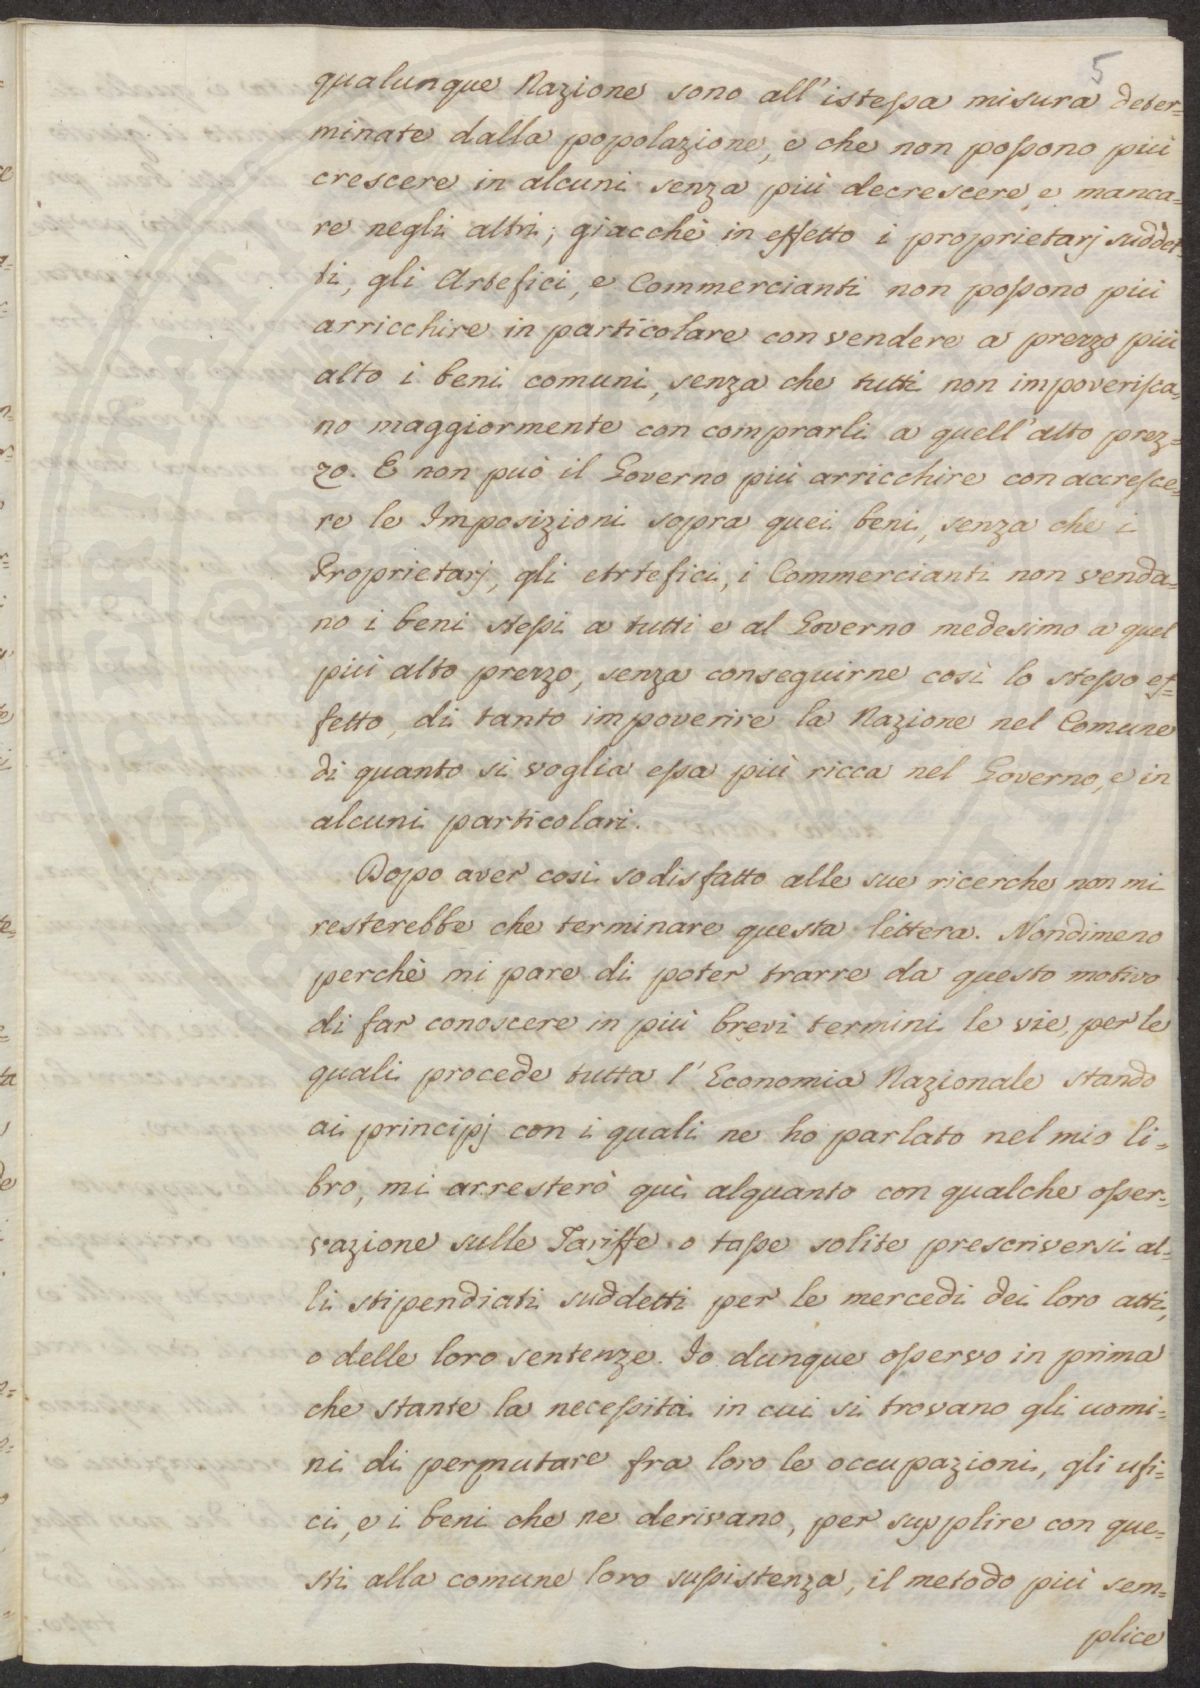 5
qualunque Nazione sono all'istessa misura deter=
minate dalla popolazione, e che non possono più
crescere in alcuni senza più decrescere, e manca=
re negli altri; giacchè in effetto i proprietarj suddet=
ti, gli Artefici, e Commercianti non possono più
arricchire in particolare con vendere a prezzo più
alto i beni comuni, senza che tutti non impoverisca=
no maggiormente con comprarli a quell'alto prez=
zo. E non può il Governo più arricchire con accresce=
re le Imposizioni sopra quei beni, senza che i
Proprietarj, gli Artefici, i Commercianti non venda=
no i beni stessi a tutti e al Governo medesimo a quel
più alto prezzo, senza conseguirne così lo stesso ef=
fetto, di tanto impoverire la Nazione nel Comune
di quanto si voglia essa più ricca nel Governo, e in
alcuni particolari.
Dopo aver così sodisfatto alle sue ricerche non mi
resterebbe che terminare questa lettera. Nondimeno
perchè mi pare di poter trarre da questo motivo
di far conoscere in più brevi termini le vie, per le
quali procede tutta l'Economia Nazionale stando
ai principj con i quali ne ho parlato nel mio li=
bro, mi arresterò quì alquanto con qualche osser=
vazione sulle Tariffe o tasse solite prescriversi al=
li stipendiati suddetti per le mercedi dei loro atti,
o delle loro sentenze. Io dunque osservo in prima
che stante la necessità in cui si trovano gli uomi=
ni di permutare fra loro le occupazioni, gli ufi=
cii, e i beni che ne derivano, per supplire con que=
sti alla comune loro sussistenza, il metodo più sem=
plice